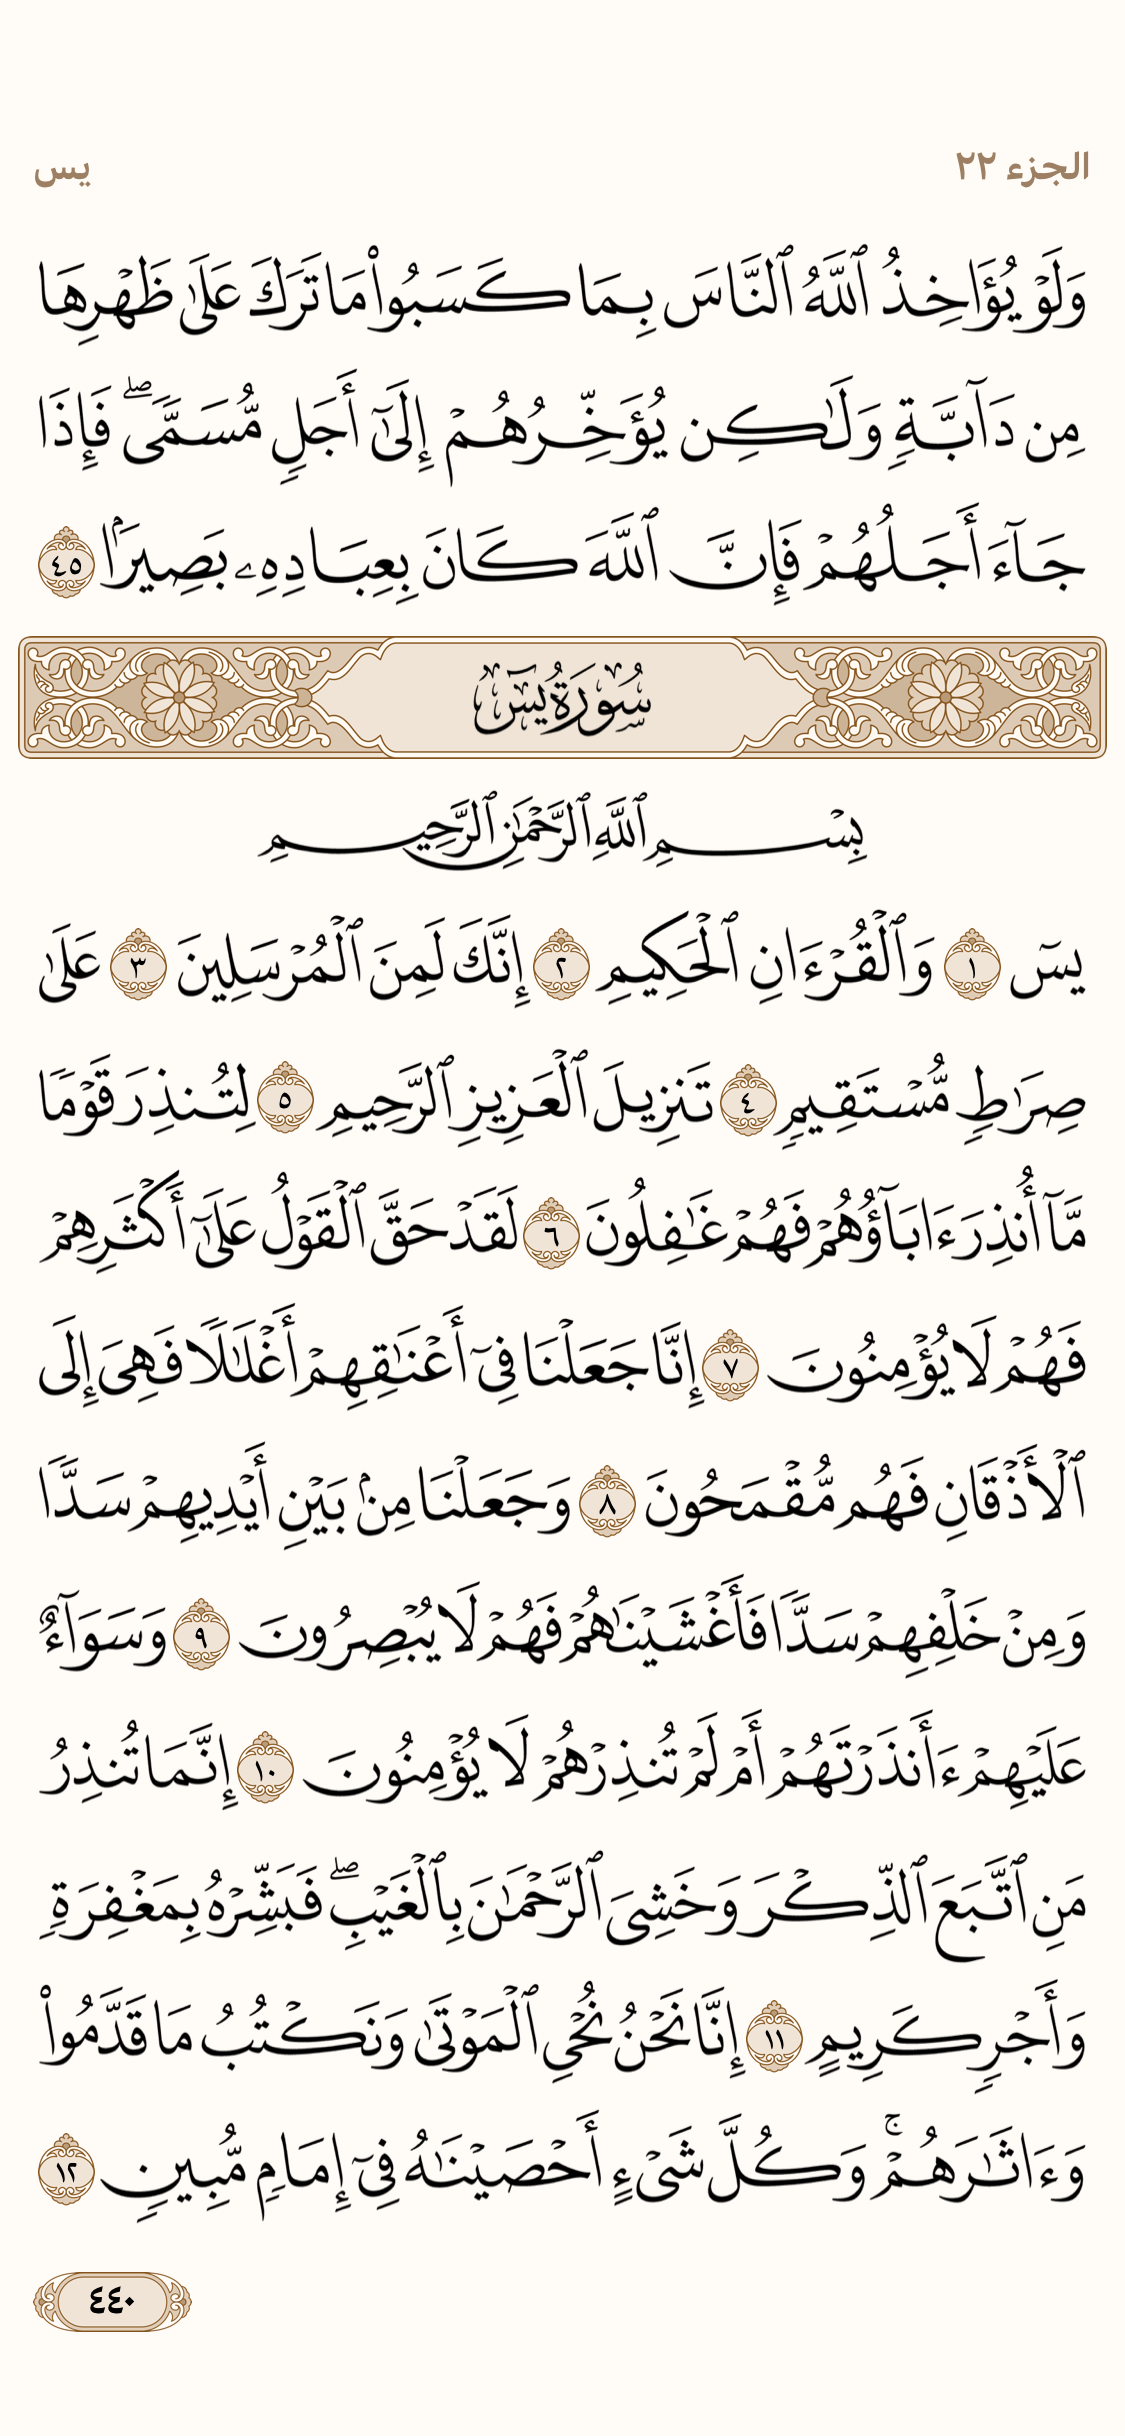 الجزء ٢٢
يس
وَلَوْ يُؤَاخِذُ ٱللَّهُ ٱلنَّاسَ بِمَا كَسَبُوا۟ مَا تَرَكَ عَلَىٰ ظَهْرِهَا
مِن دَآبَّةٍ وَلَـٰكِن يُؤَخِّرُهُمْ إِلَىٰٓ أَجَلٍ مُّسَمًّى ۖ فَإِذَا
جَآءَ أَجَلُهُمْ فَإِنَّ ٱللَّهَ كَانَ بِعِبَادِهِۦ بَصِيرًۢا ٤٥
سُورَةُ يسٓ
بِسْمِ ٱللَّهِ ٱلرَّحْمَـٰنِ ٱلرَّحِيمِ
يسٓ ١ وَٱلْقُرْءَانِ ٱلْحَكِيمِ ٢ إِنَّكَ لَمِنَ ٱلْمُرْسَلِينَ ٣ عَلَىٰ
صِرَٰطٍ مُّسْتَقِيمٍ ٤ تَنزِيلَ ٱلْعَزِيزِ ٱلرَّحِيمِ ٥ لِتُنذِرَ قَوْمًا
مَّآ أُنذِرَ ءَابَآؤُهُمْ فَهُمْ غَـٰفِلُونَ ٦ لَقَدْ حَقَّ ٱلْقَوْلُ عَلَىٰٓ أَكْثَرِهِمْ
فَهُمْ لَا يُؤْمِنُونَ ٧ إِنَّا جَعَلْنَا فِىٓ أَعْنَـٰقِهِمْ أَغْلَـٰلًا فَهِىَ إِلَى
ٱلْأَذْقَانِ فَهُم مُّقْمَحُونَ ٨ وَجَعَلْنَا مِنۢ بَيْنِ أَيْدِيهِمْ سَدًّا
وَمِنْ خَلْفِهِمْ سَدًّا فَأَغْشَيْنَـٰهُمْ فَهُمْ لَا يُبْصِرُونَ ٩ وَسَوَآءٌ
عَلَيْهِمْ ءَأَنذَرْتَهُمْ أَمْ لَمْ تُنذِرْهُمْ لَا يُؤْمِنُونَ ١٠ إِنَّمَا تُنذِرُ
مَنِ ٱتَّبَعَ ٱلذِّكْرَ وَخَشِىَ ٱلرَّحْمَـٰنَ بِٱلْغَيْبِ ۖ فَبَشِّرْهُ بِمَغْفِرَةٍ
وَأَجْرٍ كَرِيمٍ ١١ إِنَّا نَحْنُ نُحْىِ ٱلْمَوْتَىٰ وَنَكْتُبُ مَا قَدَّمُوا۟
وَءَاثَـٰرَهُمْ ۚ وَكُلَّ شَىْءٍ أَحْصَيْنَـٰهُ فِىٓ إِمَامٍ مُّبِينٍ ١٢
٤٤٠